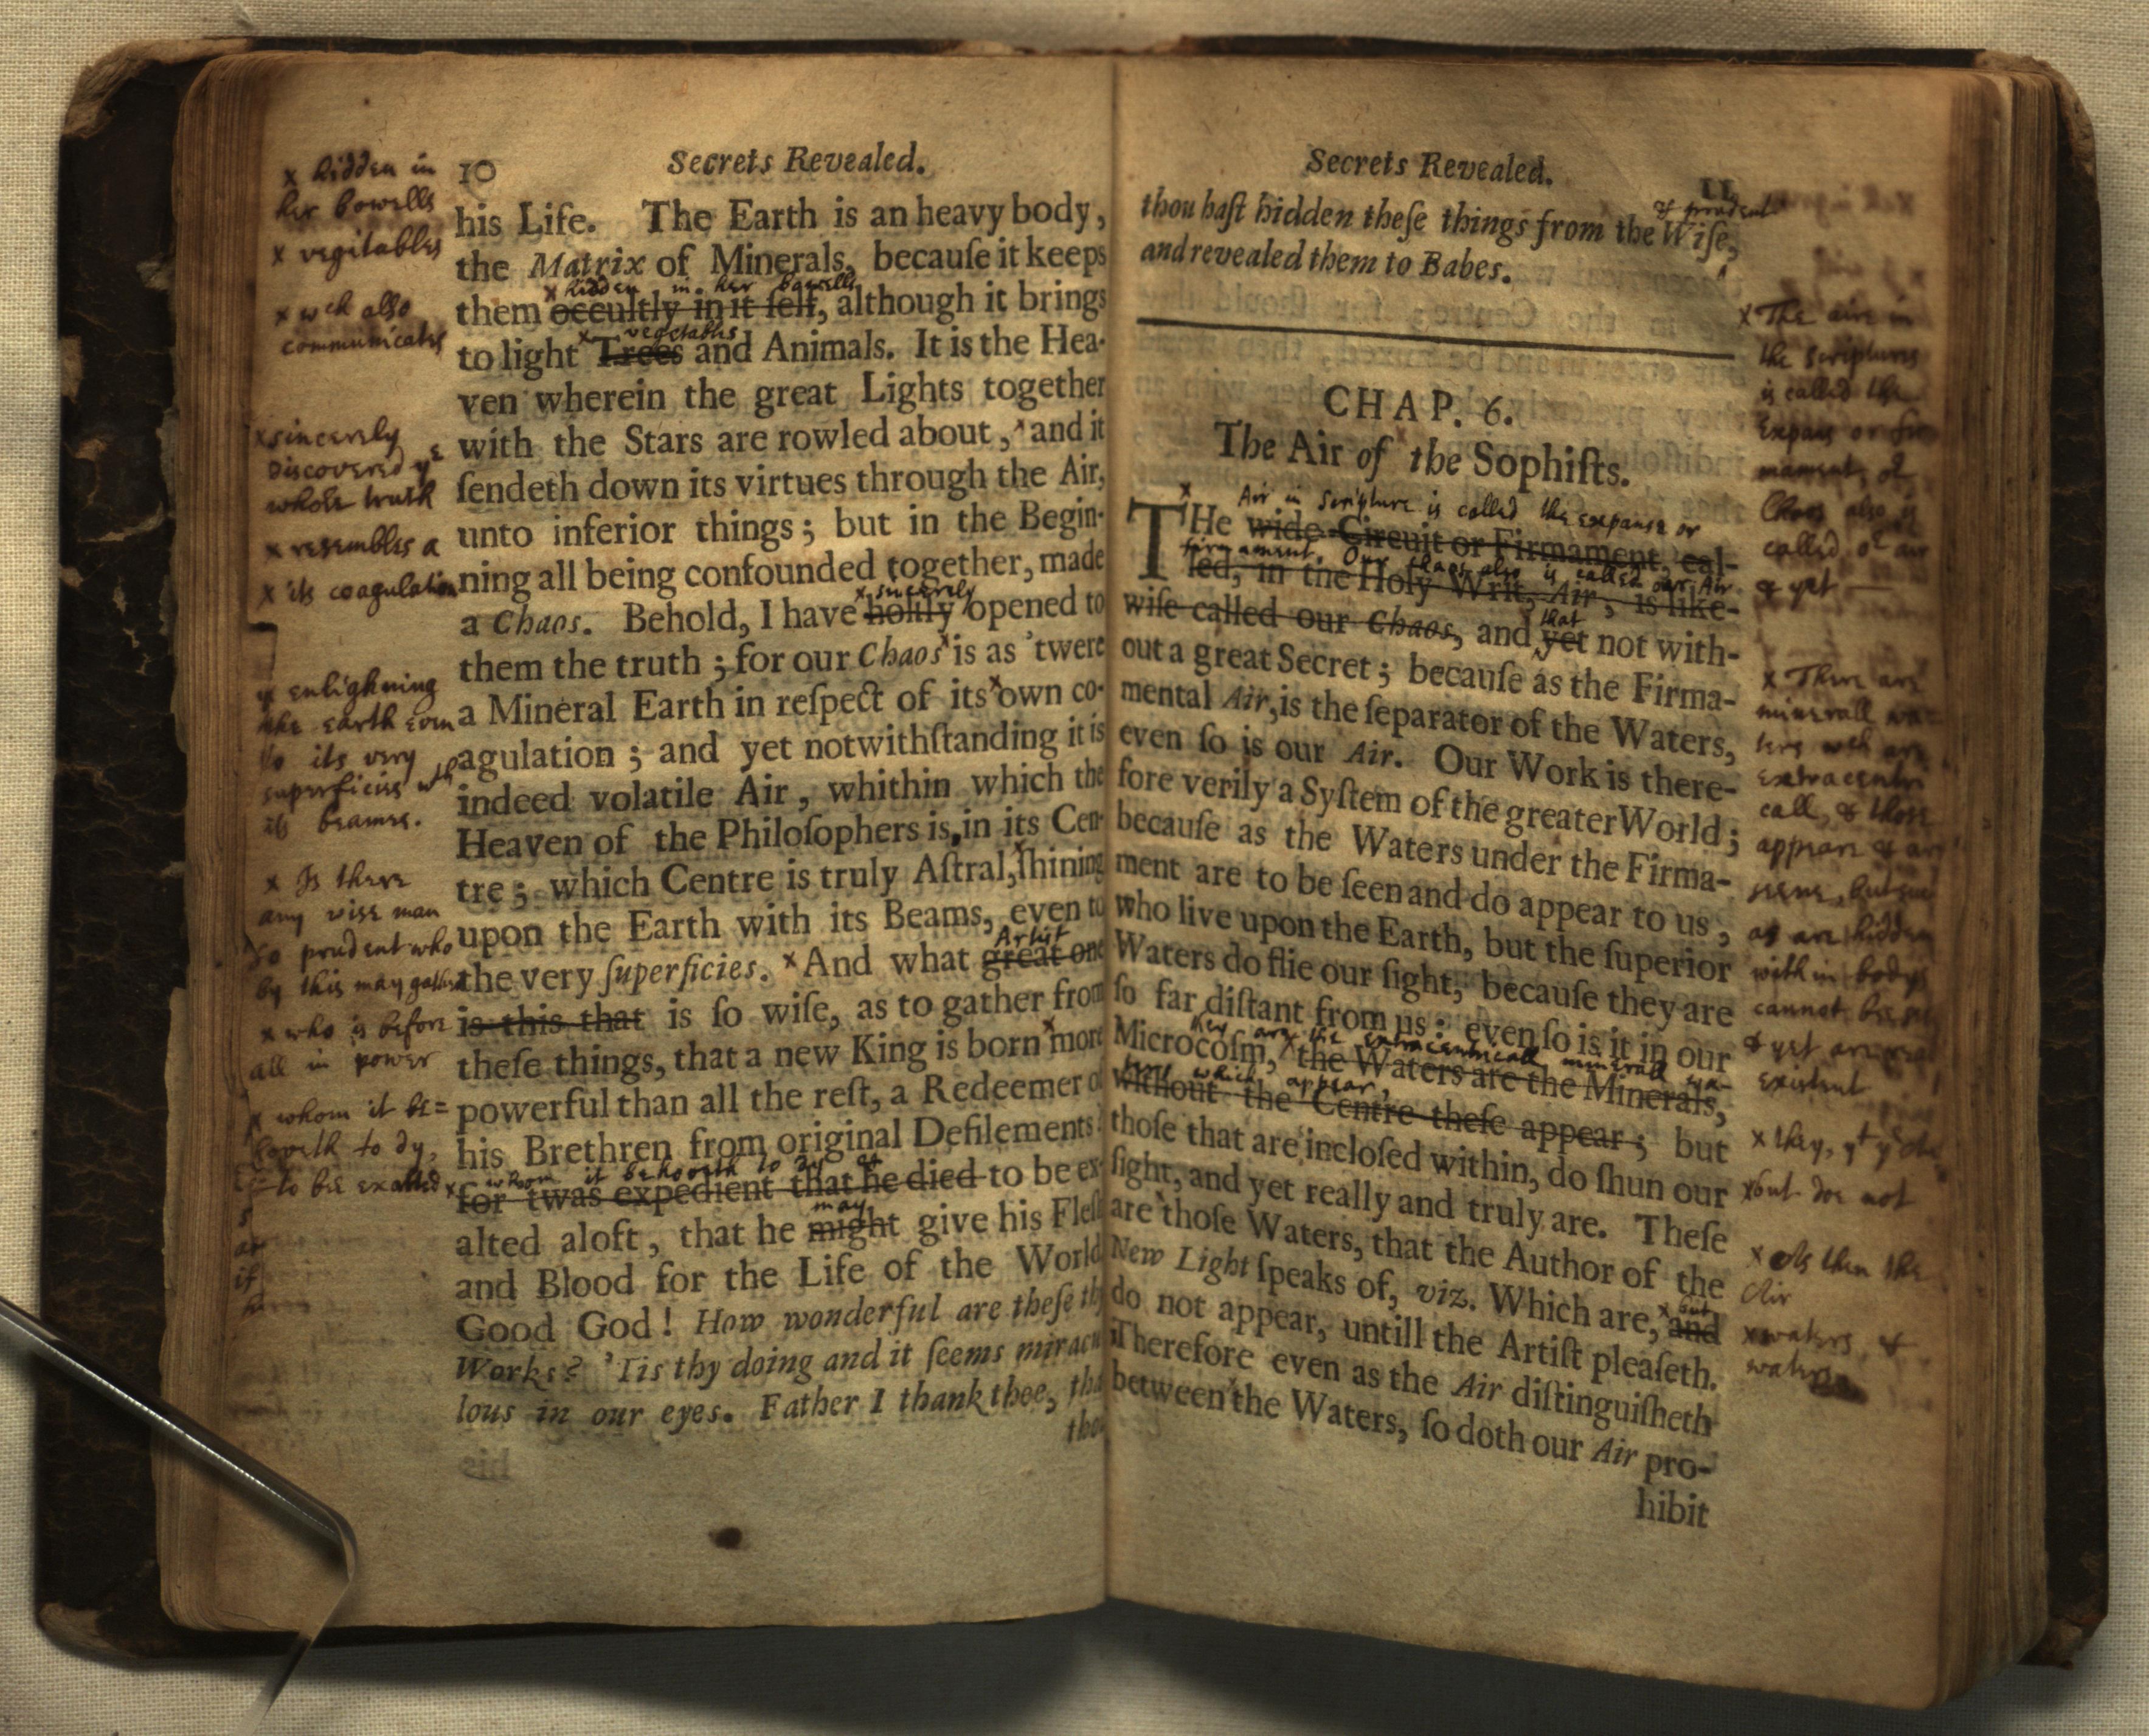 10 Secrets Revealed.
his Life. The Earth is an heavy body,
the Matrix of Minerals, becauſe it keeps
hidden in her bowells
them occultly in it ſelf, although it brings
vegetables
to light Trees and Animals. It is the Hea-
ven wherein the great Lights together
with the Stars are rowled about, and it
ſendeth down its virtues through the Air,
unto inferior things; but in the Begin-
ning all being confounded together, made
x sincerely
a Chaos. Behold, I have holily opened to
them the truth; for our Chaos is as 'twere
a Mineral Earth in reſpect of its x own co-
agulation; and yet notwithſtanding it is
indeed volatile Air, whithin which the
Heaven of the Philoſophers is, in its Cen-
tre; which Centre is truly Aſtral, ſhining
upon the Earth with its Beams, even to
Artist
the very ſuperficies. x And what great one
is this that is ſo wiſe, as to gather from
theſe things, that a new King is born x more
powerful than all the reſt, a Redeemer of
his Brethren from original Defilements
whom it behoveth to dy &
x for twas expedient that he died to be ex-
may
alted aloft, that he might give his Fleſh
and Blood for the Life of the World
Good God! How wonderful are theſe thy
Works? 'Tis thy doing and it ſeems miracu
lous in our eyes. Father I thank thee, tha
thou
x hidden in
her bowells
x vegitables
x wch also
communicates
x sincerely
Discovered ye
whole truth
x resembles a
x its coagulation
x enlighning
the earth even
to its very
superficies wth
its beames.
x Is there
any wise man
so prudent who
by this may gather
x who is before
all in power
x whom it be=
hoveth to dy,
to bee exalted
Secrets Revealed. 11
& prudent
thou haſt hidden theſe things from the Wiſe,
and revealed them to Babes.
CHAP. 6.
The Air of the Sophiſts.
x Air in Scripture is called the expanse or
THe wide Circuit or Firmament, cal-
firmament. Our Chaos also is called our Air
led, in the Holy Writ, Air, is like-
that
wiſe called our Chaos, and yet not with-
out a great Secret; becauſe as the Firma-
mental Air, is the ſeparator of the Waters,
even ſo is our Air. Our Work is there-
fore verily a Syſtem of the greater World;
becauſe as the Waters under the Firma-
ment are to be ſeen and do appear to us,
who live upon the Earth, but the ſuperior
Waters do flie our ſight, becauſe they are
ſo far diſtant from us: even ſo is it in our
are the extracentricall minerall wa-
Microcoſm, x the Waters are the Minerals,
which appear,
without the Centre theſe appear; but
thoſe that are incloſed within, do ſhun our
ſight, and yet really and truly are. Theſe
are thoſe Waters, that the Author of the
New Light ſpeaks of, viz. Which are, x and
but
do not appear, untill the Artiſt pleaſeth.
Therefore even as the Air diſtinguiſheth
between the Waters, ſo doth our Air pro-
hibit
x The aire in
the scriptures
is called the
Expans or fir
mament, or
Chaos also is
called or air
& yet
x There are
minerall wa=
ters wch are
extracentri
call, & those
appeare & are
seene, but such
as are hidden
within bodys
cannot bee seen
& yet are really
existent
x they, yt ye
x but doe not
x As then the
Air
x waters, &
waters
his